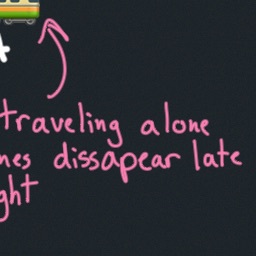 traveling alone
dissapear late